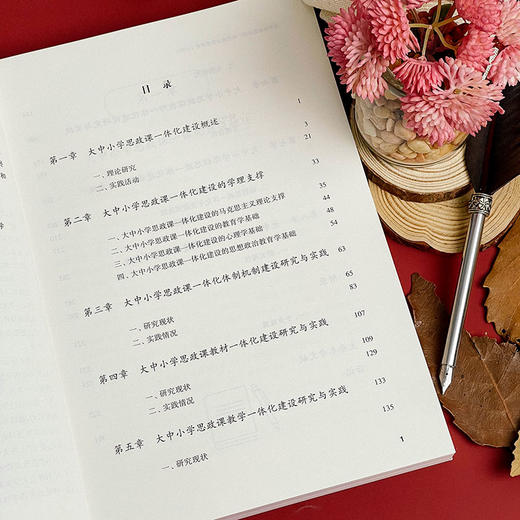 目 录
第一章 大中小学思政课一体化建设概述 1
一、理论研究 3
二、实践活动 21
第二章 大中小学思政课一体化建设的学理支撑 33
一、大中小学思政课一体化建设的马克思主义理论支撑 35
二、大中小学思政课一体化建设的教育学基础 44
三、大中小学思政课一体化建设的心理学基础 48
四、大中小学思政课一体化建设的思想政治教育学基础 54
第三章 大中小学思政课一体化体制机制建设研究与实践 63
一、研究现状 65
二、实践情况 83
第四章 大中小学思政课教材一体化建设研究与实践 107
一、研究现状
二、实践情况 129
第五章 大中小学思政课教学一体化建设研究与实践 133
一、研究现状 135
1